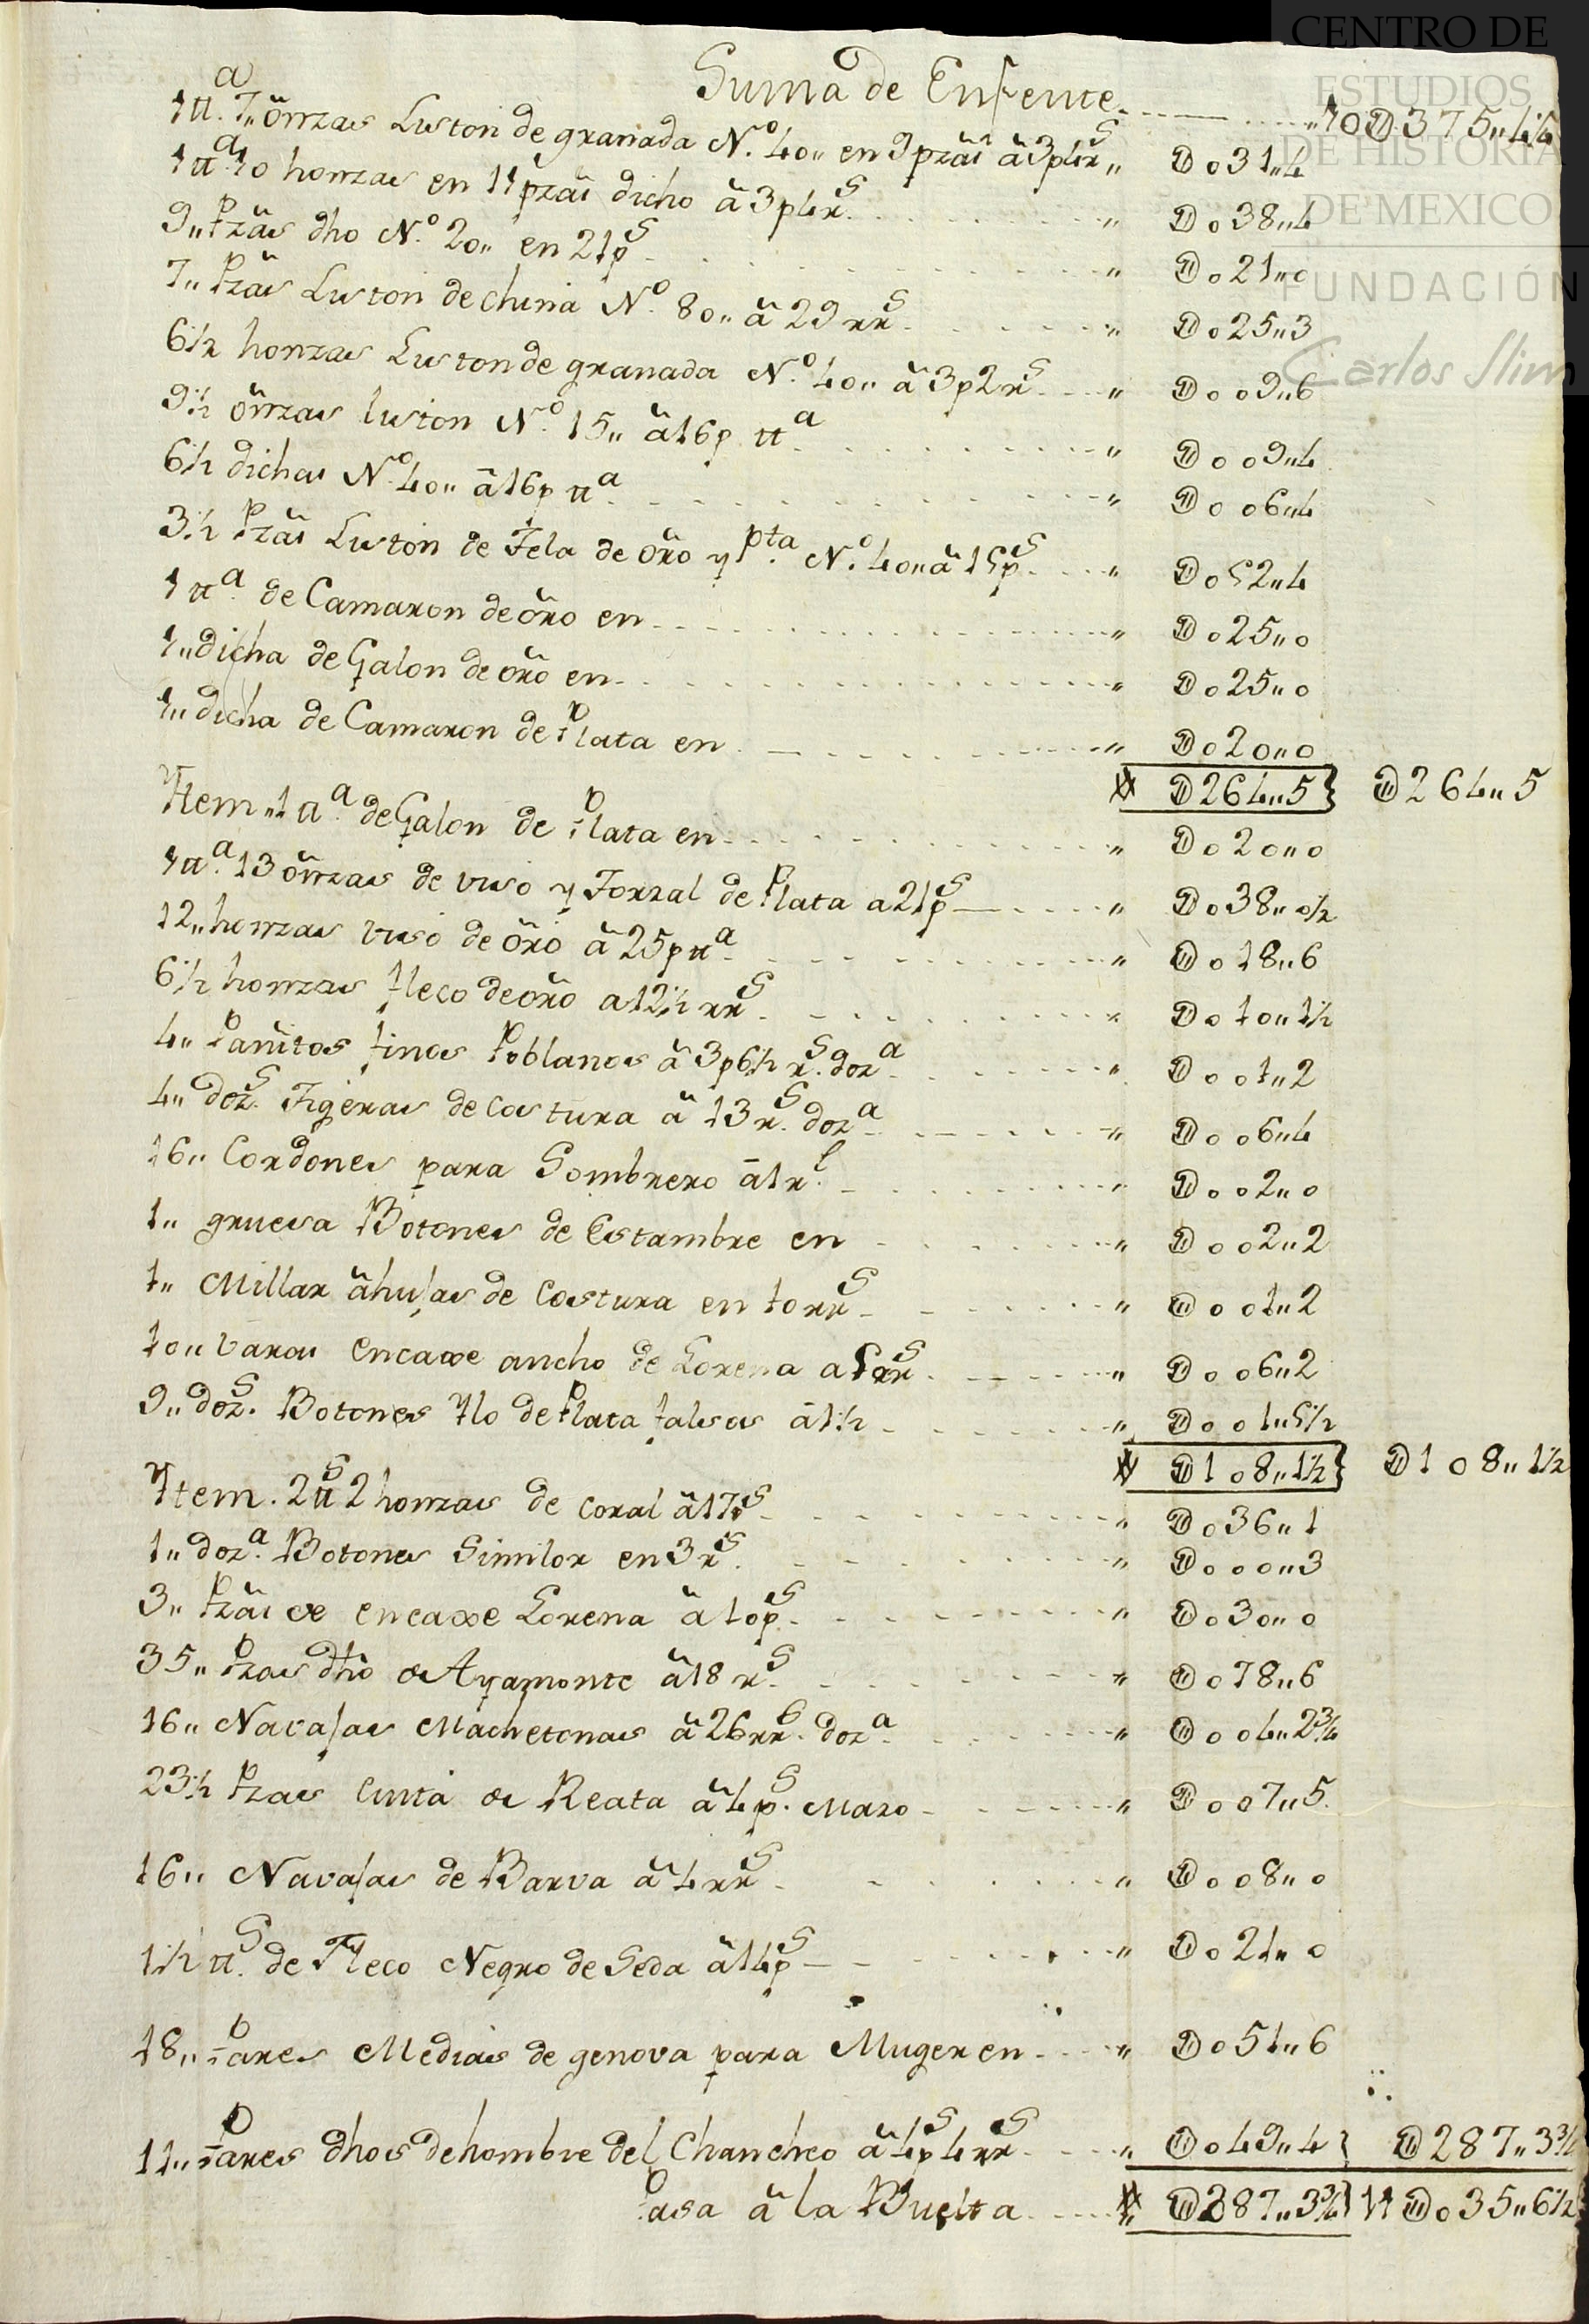 CENTRO DE
ESTUDIOS
DE HISTORIA
DE MEXICO
FUNDACIÓN
Carlos Slim
Suma de Enfrente. 10U375„4¼
1 ttª. 7„ onzas Liston de granada N.º 40„ en 9 pzas â 3p4rˢ„ U031„4
1 ttª. 10 honzas en 11 pzas dicho â 3p4rˢ. „ U038„4
9„ Pzas dho N.º 20„ en 21pˢ „ U021„0
7„ Pzas Liston de china N.º 80„ â 29 rrˢ. „ U025„3
6½ honzas Liston de granada N.º 40„ â 3p2rˢ. „ U009„6
9½ onzas liston N.º 15„ â 16p ttª. „ U009„4
6½ dichas N.º 40„ â 16p ttª. „ U006„4
3½ Pzas Liston de Tela de oro y Pta. N.º 40„ â 15pˢ. „ U052„4
1 ttª. de Camaron de oro en „ U025„0
1„ dicha de Galon de oro en „ U025„0
1„ dicha de Camaron de Plata en „ U020„0
U264„5} U264„5
Ytem „ 1 ttª. de Galon de Plata en „ U020„0
1 ttª. 13 onzas de viso y Torzal de Plata a 21pˢ „ U038„0½
12„ honzas viso de oro â 25p ttª. „ U018„6
6½ honzas fleco de oro a 12½ rrˢ. „ U010„1½
4„ Pañitos finos Poblanos â 3p6½ rˢ. dozª. „ U001„2
4„ dozˢ. Tigeras de Costura â 13 rˢ. dozª. „ U006„4
16„ Cordones para Sombrero â 1 rˡ. „ U002„0
1„ gruesa Botones de Estambre en „ U002„2
1„ Millar âhujas de Costura en 10 rrˢ „ U001„2
10„ Varas encaxe ancho de Lorena a 5 rrˢ. „ U006„2
9„ dozˢ. Botones Ylo de Plata falsos â 1½ „ U001„5½
U108„1½} U108„1½
Ytem. 2 ttˢ 2 honzas de coral â 17pˢ „ U036„1
1„ dozª. Botones Similor en 3 rˢ. „ U000„3
3„ Pzas de encaxe Lorena â 10pˢ. „ U030„0
35„ Pzas dho de Ayamonte â 18 rˢ. „ U078„6
16„ Navajas Machetonas â 26 rrˢ. dozª. „ U004„2¾
23½ Pzas Cinta de Reata â 4pˢ. Mazo „ U007„5
16„ Navajas de Barva â 4 rrˢ „ U008„0
1½ ttˢ. de Fleco Negro de Seda â 14pˢ „ U021„0
18„ Pares Medias de genova para Muger en „ U051„6
11„ Pares dhos de hombre del Chancheo â 4pˢ 4 rrˢ. „ U049„4} U287„3¾
Pasa â la Buelta U287„3¾} 11U035„6½